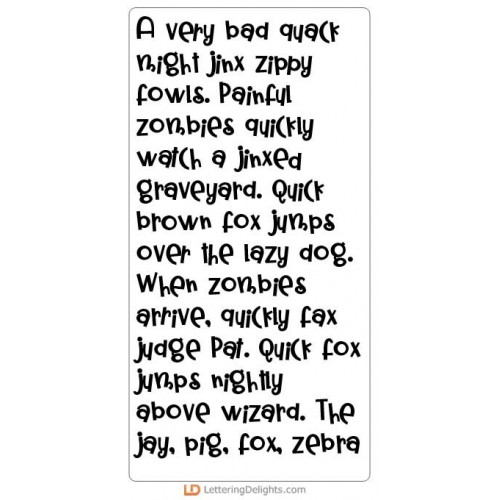 A very bad quack
might jinx zippy
fowls. Painful
zombies quickly
watch a jinxed
graveyard. Quick
brown fox jumps
over the lazy dog.
When zombies
arrive, quickly fax
judge Pat. Quick fox
jumps nightly
above wizard. The
jay, pig, fox, zebra
LD LetteringDelights.com